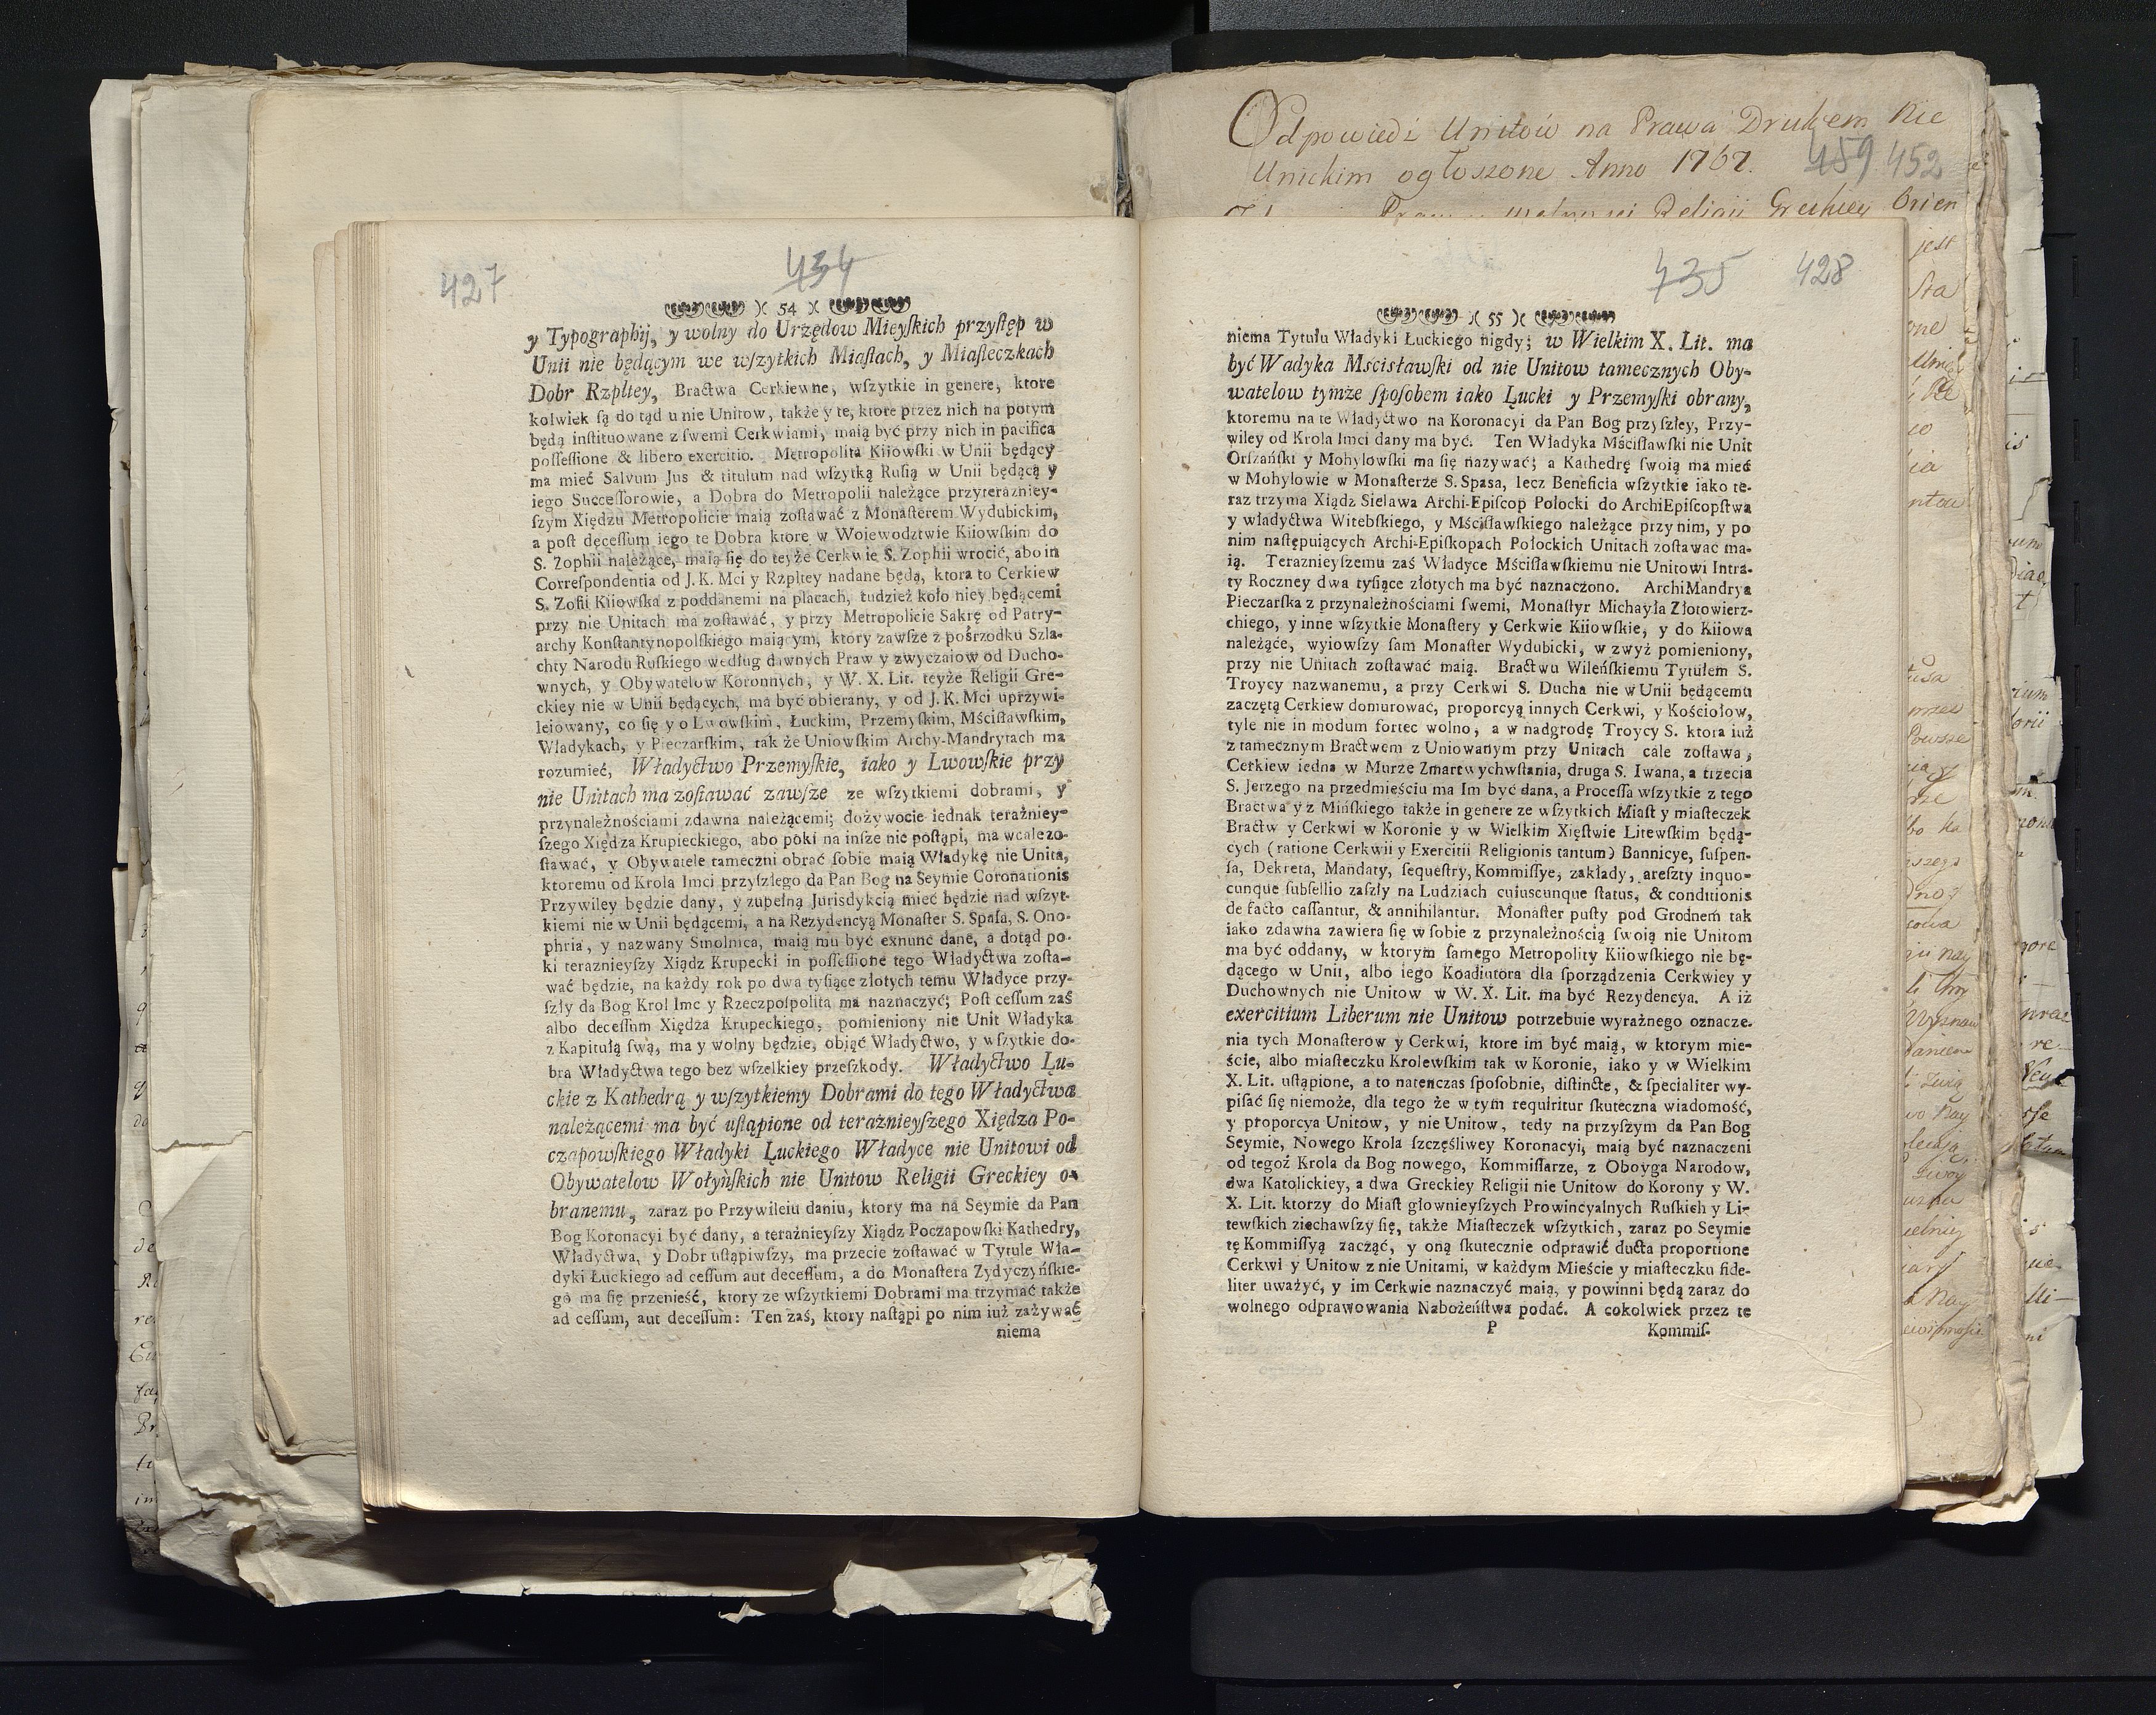 427
434
)( 54 )(
y Typographij, y wolny do Urzędow Mieyſkich przyſtęp w
Unii nie będącym we wſzytkich Miaſtach, y Miaſteczkach
Dobr Rzpltey, Bractwa Cerkiewne, wſzytkie in genere, ktore
kolwiek ſą do tąd u nie Unitow, także y te, ktore przez nich na potym
będą inſtituowane z ſwemi Cerkwiami, maią być przy nich in pacifica
poſſeſſione & libero exercitio. Metropolita Kiiowſki w Unii będący
ma mieć Salvum Jus & titulum nad wſzytką Ruſią w Unii będącą y
iego Succeſſorowie, a Dobra do Metropolii należące przyterazniey-
ſzym Xiędzu Metropolicie maią zoſtawać z Monaſterem Wydubickim,
a poſt deceſſum iego te Dobra ktore w Woiewodztwie Kiiowſkim do
S. Zophii należące, maią ſię do teyże Cerkwie S. Zophii wrocić, abo in
Correſpondentia od J. K. Mci y Rzpltey nadane będą, ktora to Cerkiew
S. Zofii Kiiowſka z poddanemi na placach, tudzież koło niey będącemi
przy nie Unitach ma zoſtawać, y przy Metropolicie Sakrę od Patry-
archy Konſtantynopolſkiego maiącym, ktory zawſze z poſrzodku Szla-
chty Narodu Ruſkiego według dawnych Praw y zwyczaiow od Ducho-
wnych, y Obywatelow Koronnych, y W. X. Lit. teyże Religii Gre-
ckiey nie w Unii będących, ma być obierany, y od J. K. Mci uprzywi-
leiowany, co ſię y o Lwowſkim, Łuckim, Przemyſkim, Mſciſławſkim,
Władykach, y Pieczarſkim, tak że Uniowſkim Archy-Mandrytach ma
rozumieć, Władyctwo Przemyſkie, iako y Lwowſkie przy
nie Unitach ma zoſtawać zawſze ze wſzytkiemi dobrami, y
przynależnościami zdawna należącemi; dożywocie iednak teraźniey-
ſzego Xiędza Krupieckiego, abo poki na inſze nie poſtąpi, ma wcale zo-
ſtawać, y Obywatele tameczni obrać ſobie maią Władykę nie Unita,
ktoremu od Krola Imci przyſzłego da Pan Bog na Seymie Coronationis
Przywiley będzie dany, y zupełną Jurisdykcią mieć będzie nad wſzyt-
kiemi nie w Unii będącemi, a na Rezydencyą Monaſter S. Spaſa, S. Ono-
phria, y nazwany Smolnica, maią mu być exnunc dane, a dotąd po-
ki teraznieyſzy Xiądz Krupecki in poſſeſſione tego Władyctwa zoſta-
wać będzie, na każdy rok po dwa tyſiące złotych temu Władyce przy-
ſzły da Bog Krol Imc y Rzeczpoſpolita ma naznaczyć; Poſt ceſſum zaś
albo deceſſum Xiędza Krupeckiego, pomieniony nie Unit Władyka
z Kapitułą ſwą, ma y wolny będzie, obiąć Władyctwo, y wſzytkie do-
bra Władyctwa tego bez wſzelkiey przeſzkody. Władyctwo Lu-
ckie z Kathedrą y wſzytkiemy Dobrami do tego Władyctwa
należącemi ma być uſtąpione od teraźnieyſzego Xiędza Po-
czapowſkiego Władyki Łuckiego Władyce nie Unitowi od
Obywatelow Wołyńſkich nie Unitow Religii Greckiey o-
branemu, zaraz po Przywileiu daniu, ktory ma na Seymie da Pan
Bog Koronacyi być dany, a teraźnieyſzy Xiądz Poczapowſki Kathedry,
Władyctwa, y Dobr uſtąpiwſzy, ma przecie zoſtawać w Tytule Wła-
dyki Łuckiego ad ceſſum aut deceſſum, a do Monaſtera Zydyczyńſkie-
go ma ſię przenieść, ktory ze wſzytkiemi Dobrami ma trzymać także
ad ceſſum, aut deceſſum: Ten zaś, ktory naſtąpi po nim iuż zażywać
niema
Odpowiedź Unitów na Prawa Drukem Nie
Unickim ogłoszone Anno 1767.
459 452
435
428
)( 55 )(
niema Tytułu Władyki Łuckiego nigdy; w Wielkim X. Lit. ma
być Wadyka Mścisławſki od nie Unitow tamecznych Oby-
watelow tymże ſpoſobem iako Łucki y Przemyſki obrany,
ktoremu na te Władyctwo na Koronacyi da Pan Bog przyſzłey, Przy-
wiley od Krola Imci dany ma być. Ten Władyka Mściſławſki nie Unit
Orſzańſki y Mohylowſki ma ſię nazywać; a Kathedrę ſwoią ma mieć
w Mohylowie w Monaſterże S. Spasa, lecz Beneficia wſzytkie iako te-
raz trzyma Xiądz Sielawa Archi-Epiſcop Połocki do ArchiEpiſcopſtwa
y władyctwa Witebſkiego, y Mściſławſkiego należące przy nim, y po
nim naſtępuiących Archi-Epiſkopach Połockich Unitach zoſtawac ma-
ią. Teraznieyſzemu zaś Władyce Mściſławſkiemu nie Unitowi Intra-
ty Roczney dwa tyſiące złotych ma być naznaczono. ArchiMandrya
Pieczarſka z przynależnościami ſwemi, Monaſtyr Michayła Złotowierz-
chiego, y inne wſzytkie Monaſtery y Cerkwie Kiiowſkie, y do Kiiowa
należąće, wyiowſzy ſam Monaſter Wydubicki, w zwyż pomieniony,
przy nie Unitach zoſtawać maią. Bractwu Wileńſkiemu Tytułem S.
Troycy nazwanemu, a przy Cerkwi S. Ducha nie w Unii będącemu
zaczętą Cerkiew domurować, proporcyą innych Cerkwi, y Kościołow,
tyle nie in modum fortec wolno, a w nadgrodę Troycy S. ktora iuż
z tamecznym Bractwem z Uniowanym przy Unitach cale zoſtawa,
Cerkiew iedna w Murze Zmartwychwſtania, druga S. Iwana, a trzecia
S. Jerzego na przedmieściu ma Im być dana, a Proceſſa wſzytkie z tego
Bractwa y z Mińſkiego także in genere ze wſzytkich Miaſt y miaſteczek
Bractw y Cerkwi w Koronie y w Wielkim Xięſtwie Litewſkim będą-
cych (ratione Cerkwii y Exercitii Religionis tantum) Bannicye, ſuſpen-
ſa, Dekreta, Mandaty, ſequeſtry, Kommiſſye, zakłady, areſzty inquo-
cunque ſubſellio zaſzły na Ludziach cuiuscunque ſtatus, & conditionis
de facto caſſantur, & annihilantur. Monaſter puſty pod Grodnem tak
iako zdawna zawiera ſię w ſobie z przynależnością ſwoią nie Unitom
ma być oddany, w ktorym ſamego Metropolity Kiiowſkiego nie bę-
dącego w Unii, albo iego Koadiutora dla ſporządzenia Cerkwiey y
Duchownych nie Unitow w W. X. Lit. ma być Rezydencya. A iż
exercitium Liberum nie Unitow potrzebuie wyraźnego oznacze-
nia tych Monaſterow y Cerkwi, ktore im być maią, w ktorym mie-
ście, albo miaſteczku Krolewſkim tak w Koronie, iako y w Wielkim
X. Lit. uſtąpione, a to natenczas ſpoſobnie, diſtincte, & ſpecialiter wy-
piſać ſię niemoże, dla tego że w tym requiritur ſkuteczna wiadomość,
y proporcya Unitow, y nie Unitow, tedy na przyſzym da Pan Bog
Seymie, Nowego Krola ſzczęśliwey Koronacyi, maią być naznaczeni
od tegoż Krola da Bog nowego, Kommiſſarze, z Oboyga Narodow,
dwa Katolickiey, a dwa Greckiey Religii nie Unitow do Korony y W.
X. Lit. ktorzy do Miaſt głownieyſzych Prowincyalnych Ruſkich y Li-
tewſkich ziechawſzy ſię, także Miaſteczek wſzytkich, zaraz po Seymie
tę Kommiſſyą zacząć, y oną ſkutecznie odprawić ducta proportione
Cerkwi y Unitow z nie Unitami, w każdym Mieście y miaſteczku fide-
liter uważyć, y im Cerkwie naznaczyć maią, y powinni będą zaraz do
wolnego odprawowania Nabożeńſtwa podać. A cokolwiek przez te
P
Kommiſ-